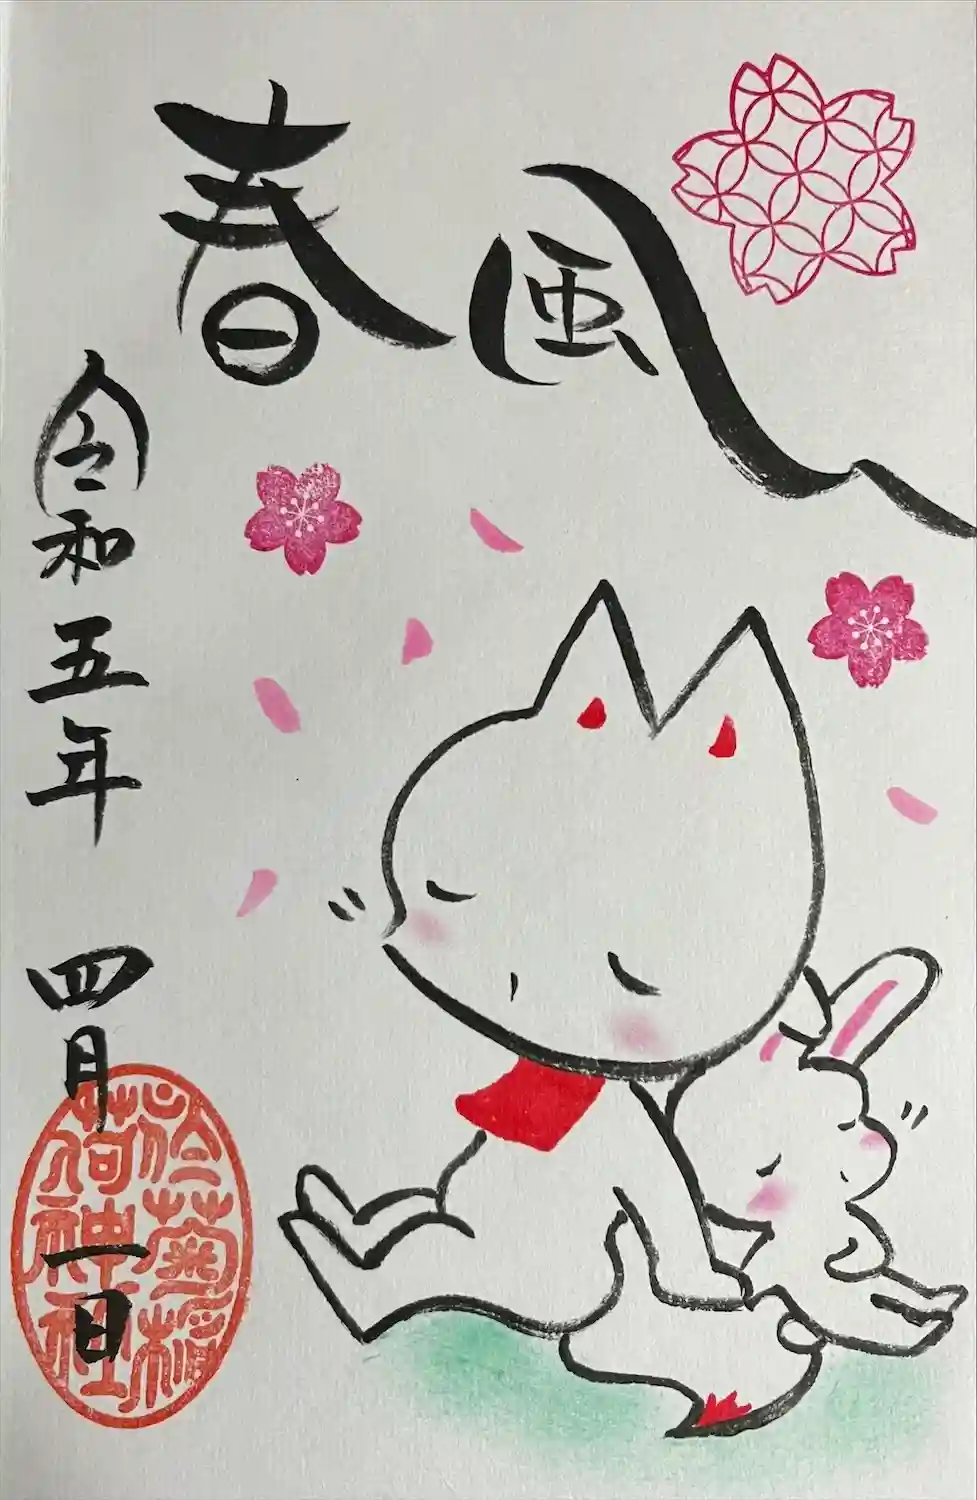 春風
令和五年 四月一日
於菊稲
荷神社